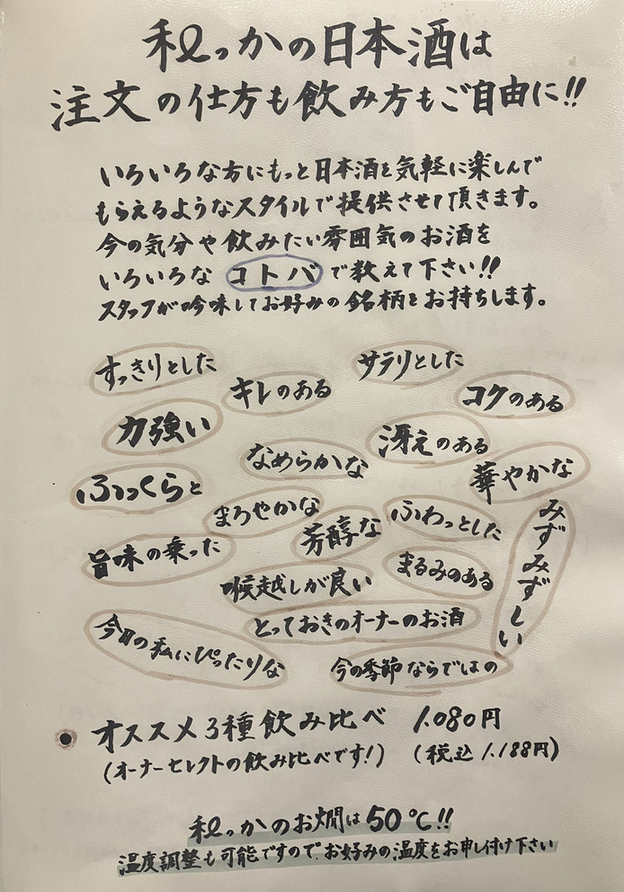 和っかの日本酒は
注文の仕方も飲み方もご自由に!!
いろいろな方にもっと日本酒を気軽に楽しんで
もらえるようなスタイルで提供させて頂きます。
今の気分や飲みたい雰囲気のお酒を
いろいろな コトバ で教えて下さい!!
スタッフが吟味してお好みの銘柄をお持ちします。
すっきりとした
サラリとした
キレのある
コクのある
力強い
冴えのある
なめらかな
華やかな
ふっくらと
まろやかな
芳醇な
ふわっとした
みずみずしい
旨味の乗った
喉越しが良い
まるみのある
とっておきのオーナーのお酒
今日の私にぴったりな
今の季節ならではの
オススメ3種飲み比べ 1.080円
(オーナーセレクトの飲み比べです!) (税込 1.188円)
和っかのお燗は50℃!!
温度調整も可能ですので、お好みの温度をお申し付け下さい